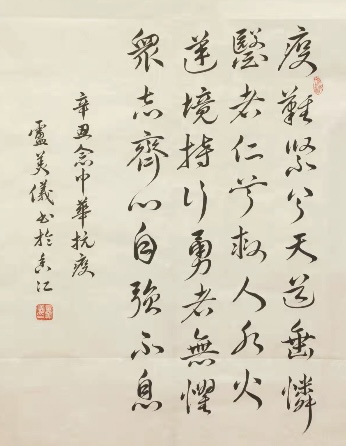 疫難緊兮天道垂憐
醫者仁兮救人水火
逆境持行勇者無懼
衆志齊心自強不息
辛丑念中華抗疫
盧美儀书於香江